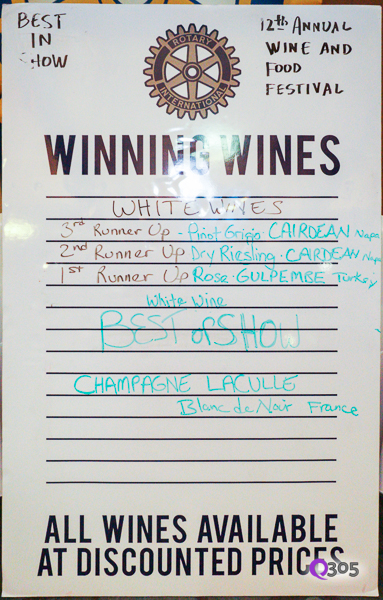 BEST
IN
SHOW
12th ANNUAL
WINE AND
FOOD
FESTIVAL
ROTARY
INTERNATIONAL
WINNING WINES
WHITE WINES
3rd Runner Up - Pinot Grigio · CAIRDEAN Napa
2nd Runner Up Dry Riesling · CAIRDEAN Napa
1st Runner Up Rose · GULPEMBE Turkey
White Wine
BEST OF SHOW
CHAMPAGNE LACULLE
Blanc de Noir France
ALL WINES AVAILABLE
AT DISCOUNTED PRICES
305